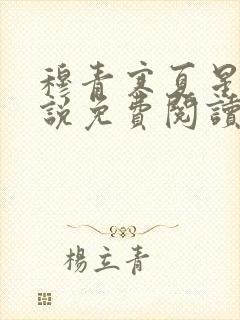 穆青寒夏星
說免費閱讀
楊立青